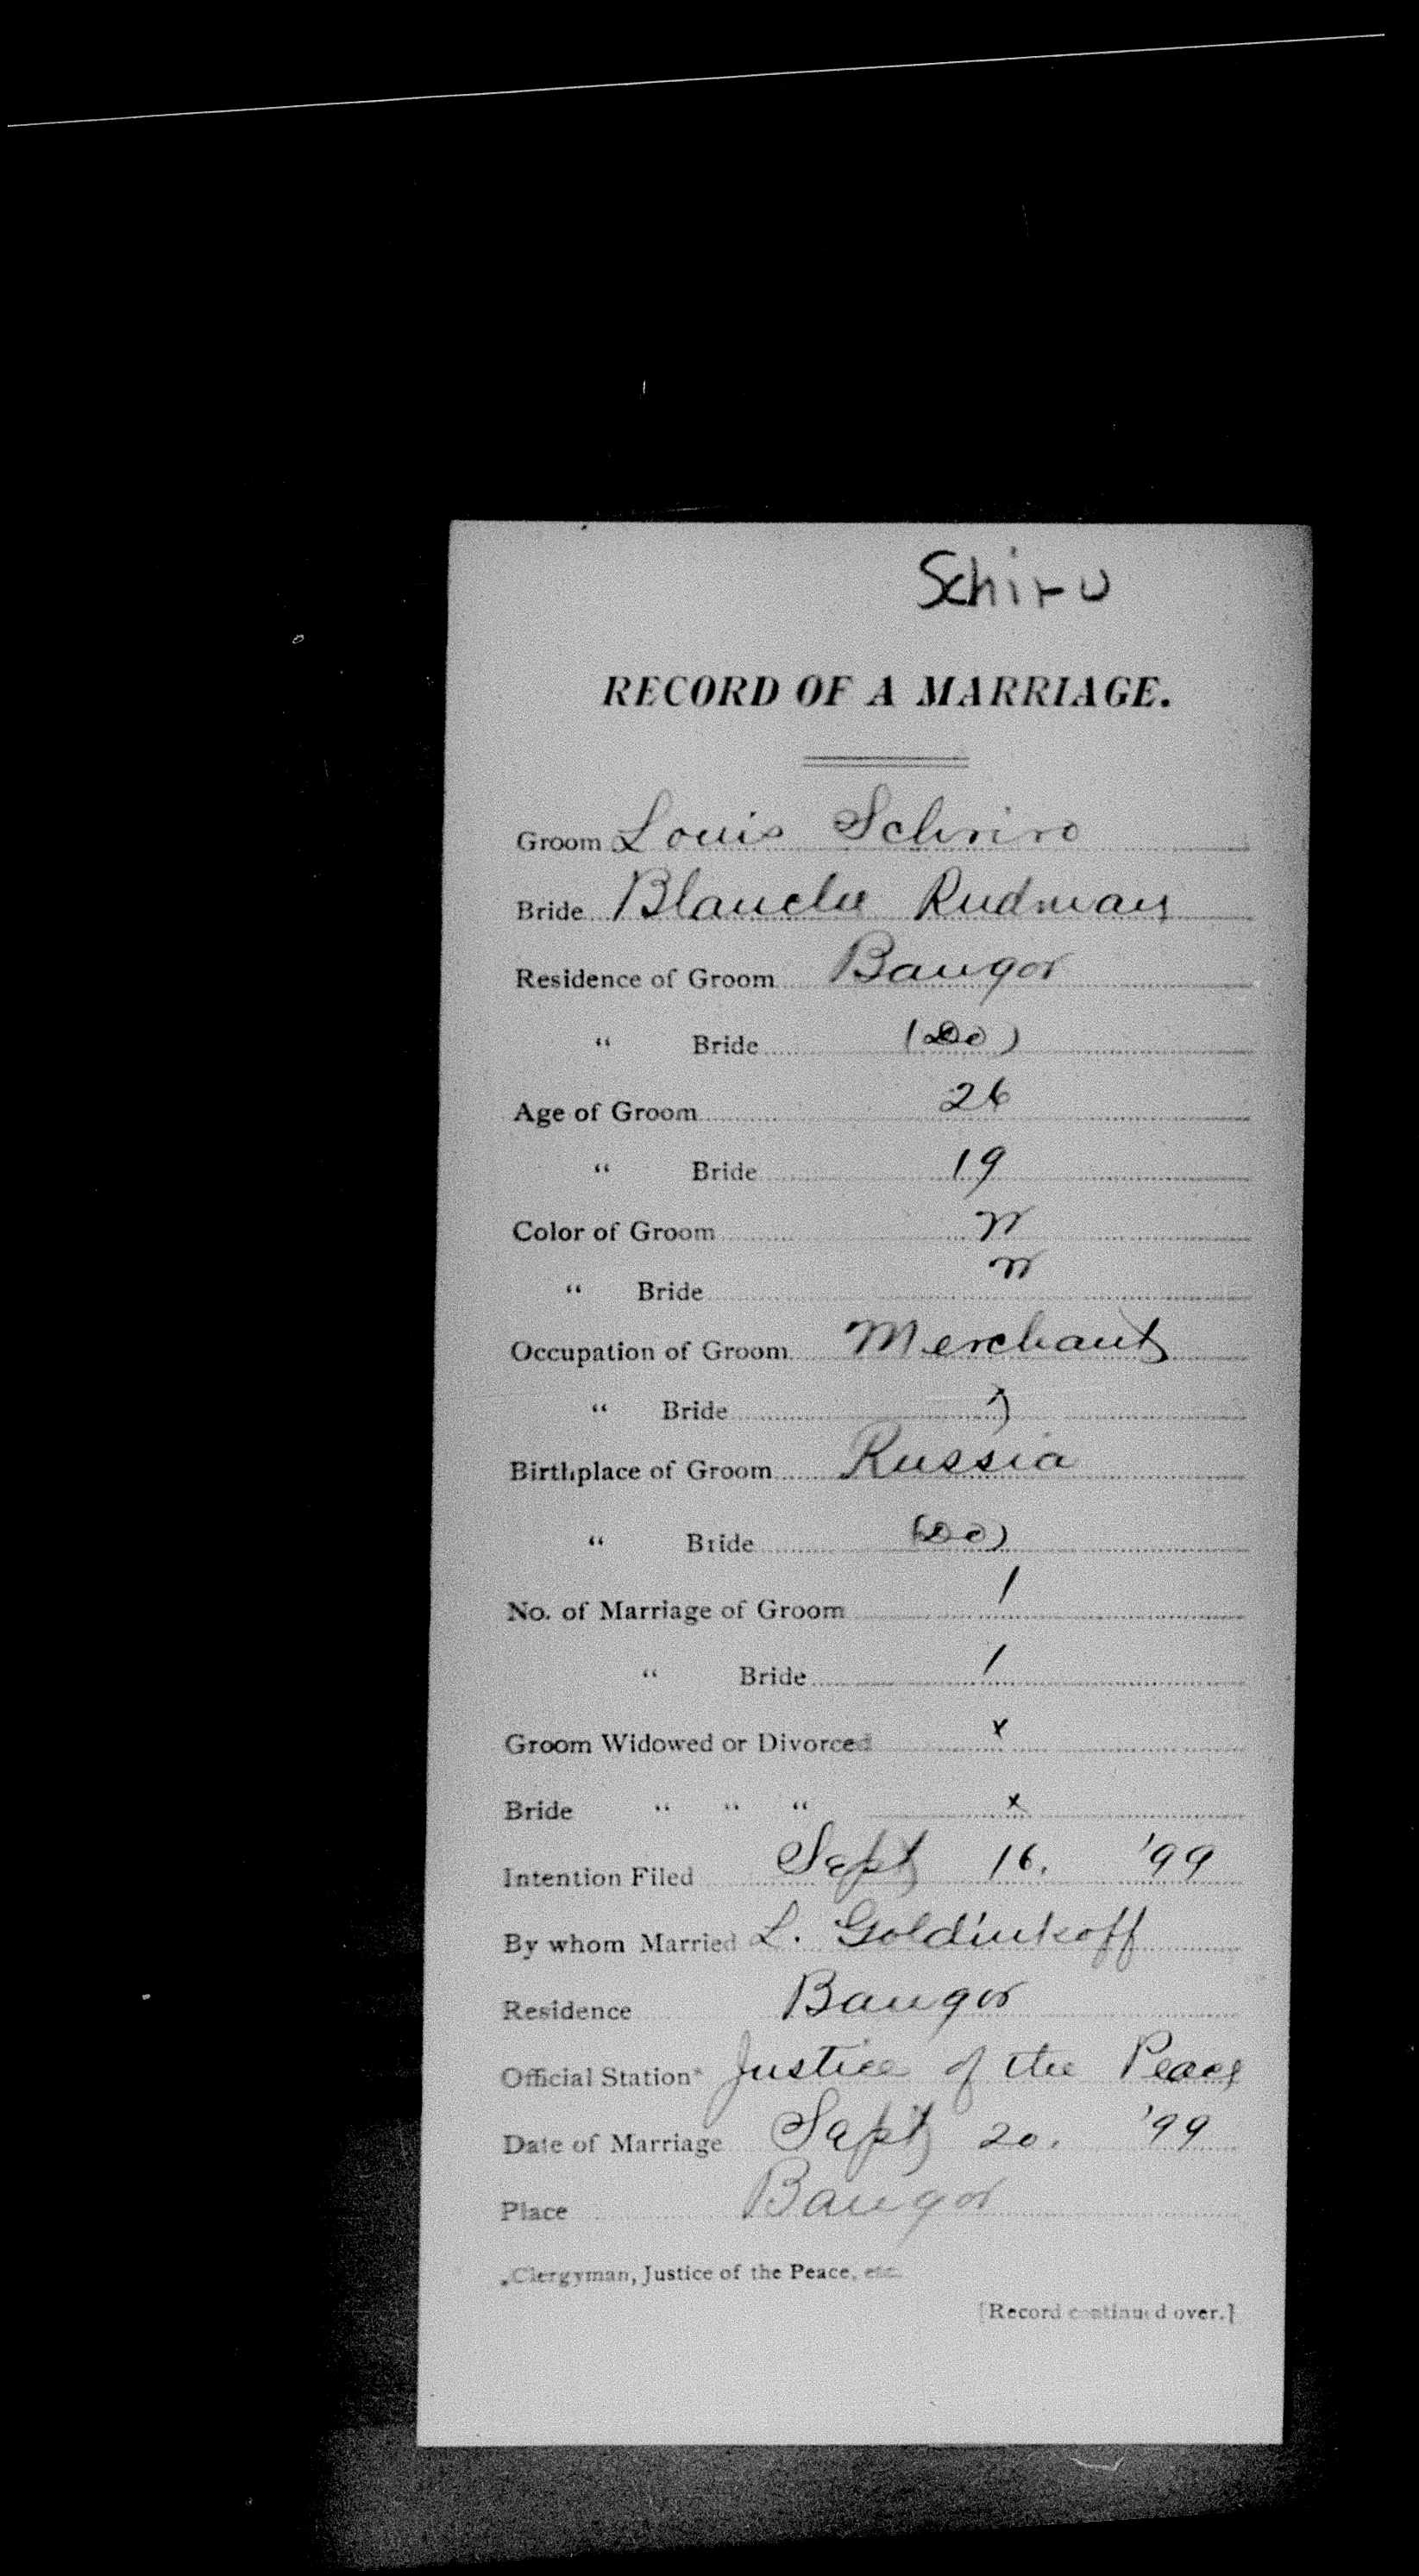 Schiro
RECORD OF A MARRIAGE.
Groom Louis Schriro
Bride Blanche Rudman
Residence of Groom Bangor
" Bride (Do)
Age of Groom 26
" Bride 19
Color of Groom W
" Bride W
Occupation of Groom Merchant
" Bride
Birthplace of Groom Russia
" Bride (Do)
No. of Marriage of Groom 1
" Bride 1
Groom Widowed or Divorced x
Bride " " " x
Intention Filed Sept 16. '99
By whom Married L. Goldinkoff
Residence Bangor
Official Station* Justice of the Peace
Date of Marriage Sept 20. '99
Place Bangor
*Clergyman, Justice of the Peace, etc.
[Record continued over.]